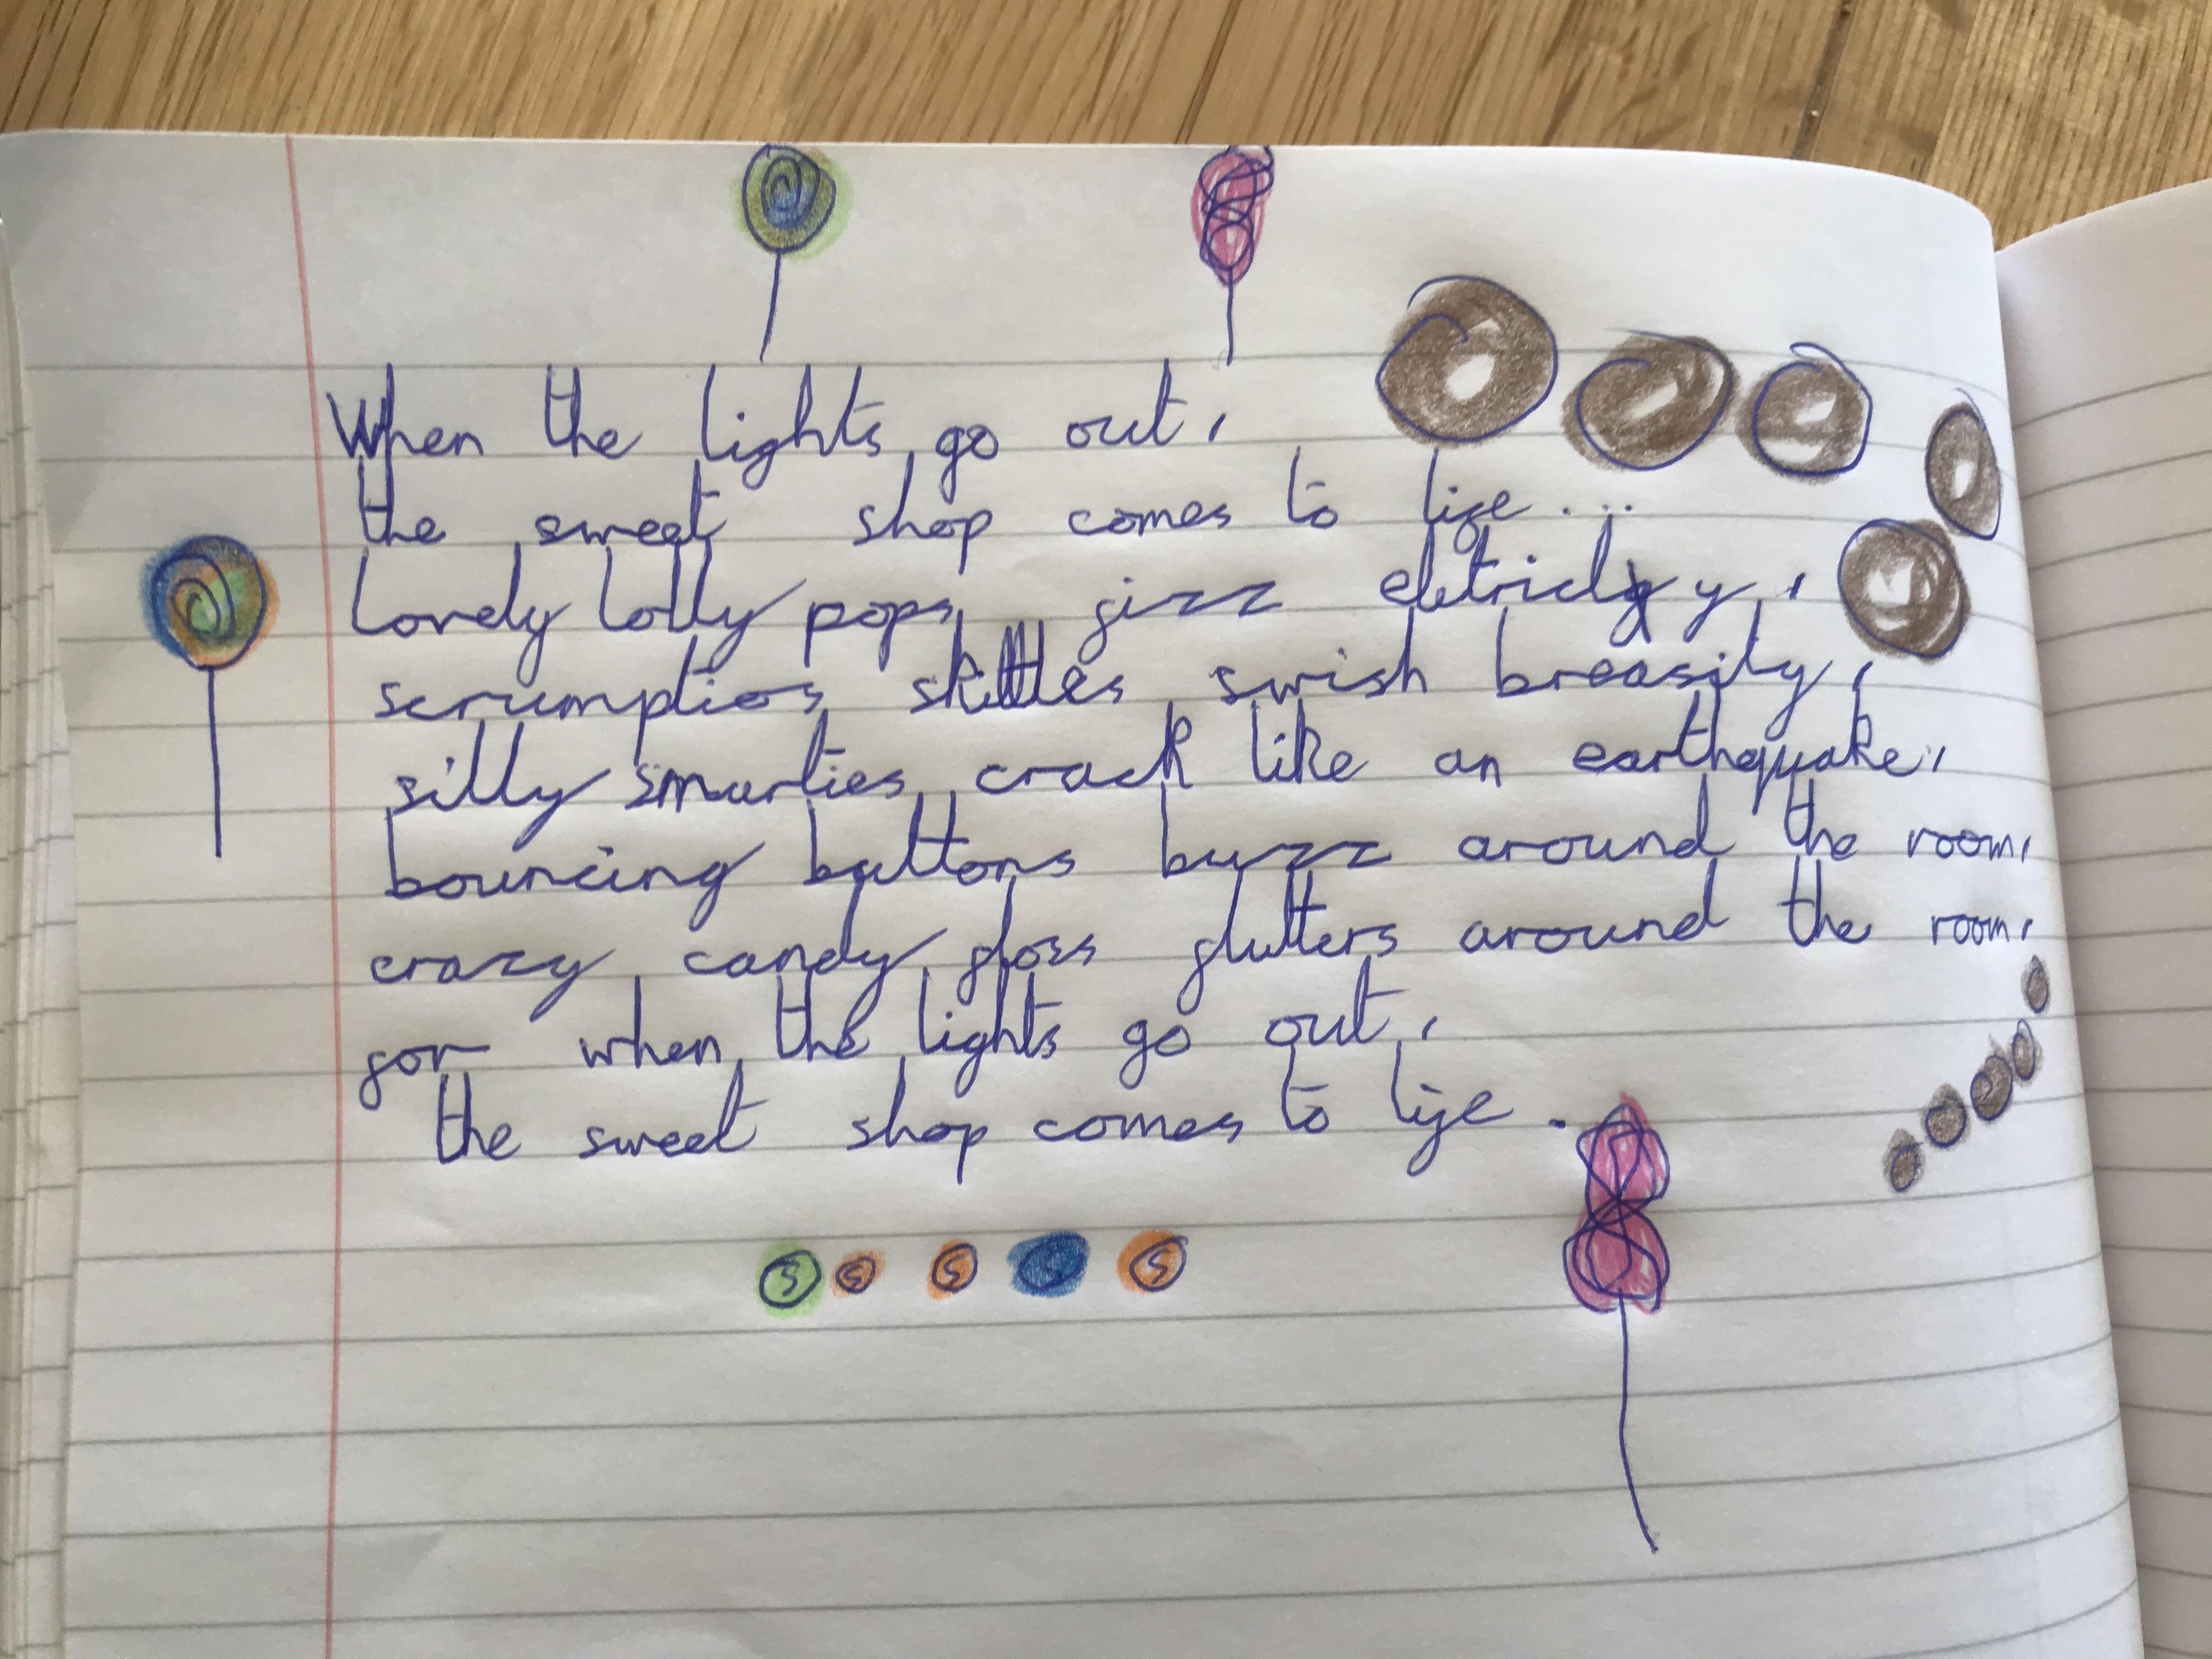 When the lights go out,
the sweet shop comes to life...
Lovely lolly pops fizz eletricly,
scrumptios skittles swish breasily,
silly smarties crack like an earthquake,
bouncing buttons buzz around the room,
crazy candy floss flutters around the room,
for when the lights go out,
the sweet shop comes to life.
S S S S S